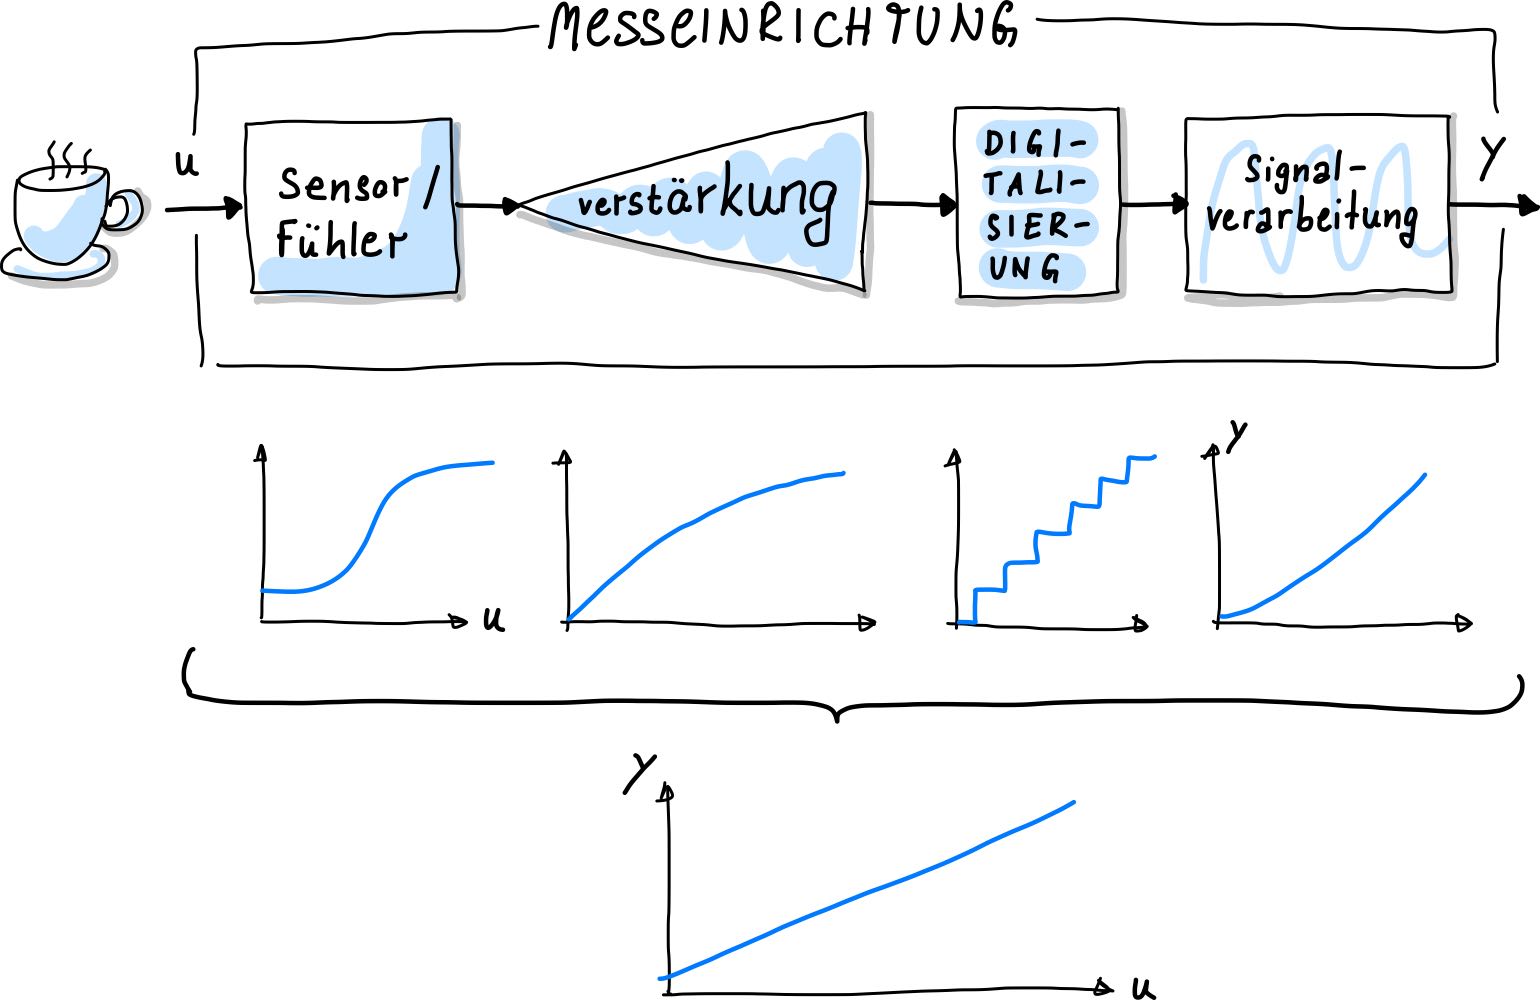 MESSEINRICHTUNG
u
Sensor /
Fühler
verstärkung
DIGI-
TALI-
SIER-
UNG
Signal-
verarbeitung
y
u
y
y
u